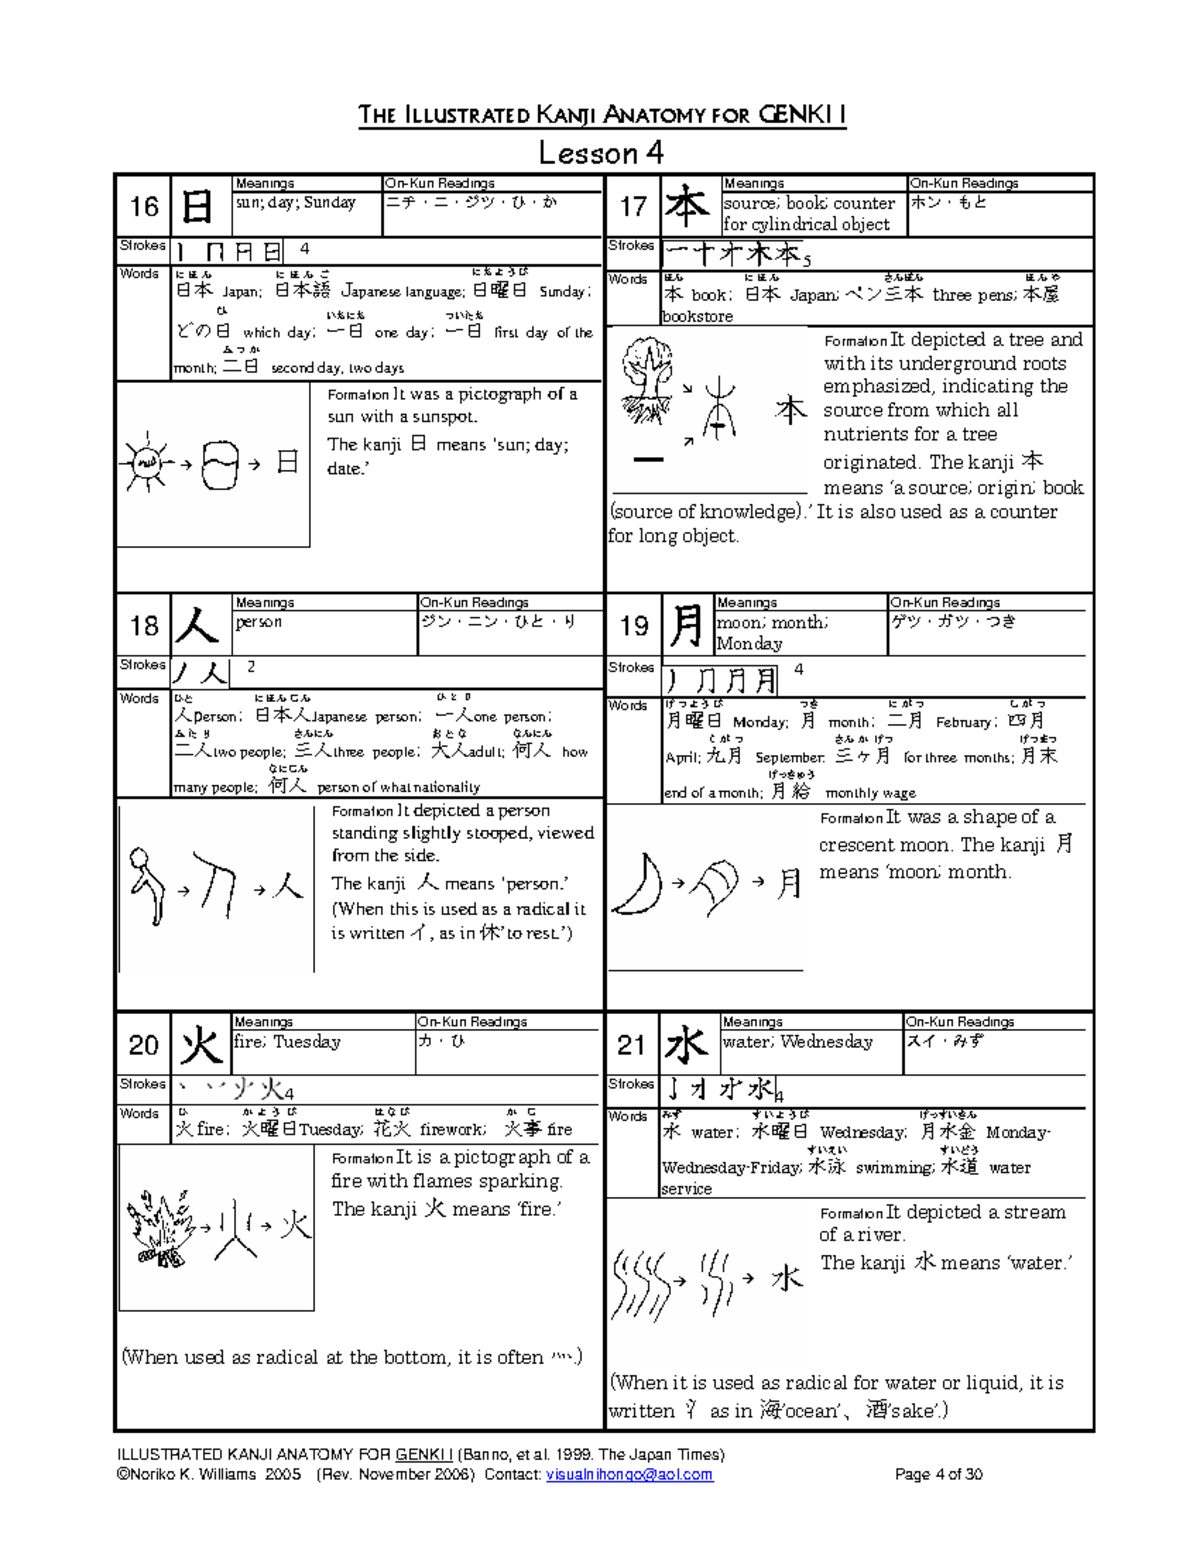 THE ILLUSTRATED KANJI ANATOMY FOR GENKI I
Lesson 4
16
日
Meanings
sun; day; Sunday
On-Kun Readings
ニチ・ニ・ジツ・ひ・か
Strokes
4
Words
にほん にほんご にちようび
日本 Japan; 日本語 Japanese language; 日曜日 Sunday;
ひ いちにち ついたち
どの日 which day; 一日 one day; 一日 first day of the
ふつか
month; 二日 second day, two days
Formation It was a pictograph of a
sun with a sunspot.
The kanji 日 means 'sun; day;
date.'
→ → 日
17
本
Meanings
source; book; counter
for cylindrical object
On-Kun Readings
ホン・もと
Strokes
5
Words
ほん にほん さんぼん ほんや
本 book; 日本 Japan; ペン三本 three pens; 本屋
bookstore
Formation It depicted a tree and
with its underground roots
emphasized, indicating the
source from which all
nutrients for a tree
originated. The kanji 本
means 'a source; origin; book
(source of knowledge).' It is also used as a counter
for long object.
本
18
人
Meanings
person
On-Kun Readings
ジン・ニン・ひと・り
Strokes
2
Words
ひと にほんじん ひとり
人person; 日本人Japanese person; 一人one person;
ふたり さんにん おとな なんにん
二人two people; 三人three people; 大人adult; 何人 how
なにじん
many people; 何人 person of what nationality
Formation It depicted a person
standing slightly stooped, viewed
from the side.
The kanji 人 means 'person.'
(When this is used as a radical it
is written イ, as in 休'to rest.')
→ → 人
19
月
Meanings
moon; month;
Monday
On-Kun Readings
ゲツ・ガツ・つき
Strokes
4
Words
げつようび つき にがつ しがつ
月曜日 Monday; 月 month; 二月 February; 四月
くがつ さんかげつ げつまつ
April; 九月 September. 三ヶ月 for three months; 月末
げっきゅう
end of a month; 月給 monthly wage
Formation It was a shape of a
crescent moon. The kanji 月
means 'moon; month.
→ → 月
20
火
Meanings
fire; Tuesday
On-Kun Readings
カ・ひ
Strokes
4
Words
ひ かようび はなび かじ
火 fire; 火曜日Tuesday; 花火 firework; 火事 fire
Formation It is a pictograph of a
fire with flames sparking.
The kanji 火 means 'fire.'
→ → 火
(When used as radical at the bottom, it is often 灬.)
21
水
Meanings
water; Wednesday
On-Kun Readings
スイ・みず
Strokes
4
Words
みず すいようび げっすいきん
水 water; 水曜日 Wednesday; 月水金 Monday-
すいえい すいどう
Wednesday-Friday; 水泳 swimming; 水道 water
service
Formation It depicted a stream
of a river.
The kanji 水 means 'water.'
→ → 水
(When it is used as radical for water or liquid, it is
written 氵 as in 海'ocean'、 酒'sake'.)
ILLUSTRATED KANJI ANATOMY FOR GENKI I (Banno, et al. 1999. The Japan Times)
©Noriko K. Williams 2005 (Rev. November 2006) Contact: visualnihongo@aol.com Page 4 of 30